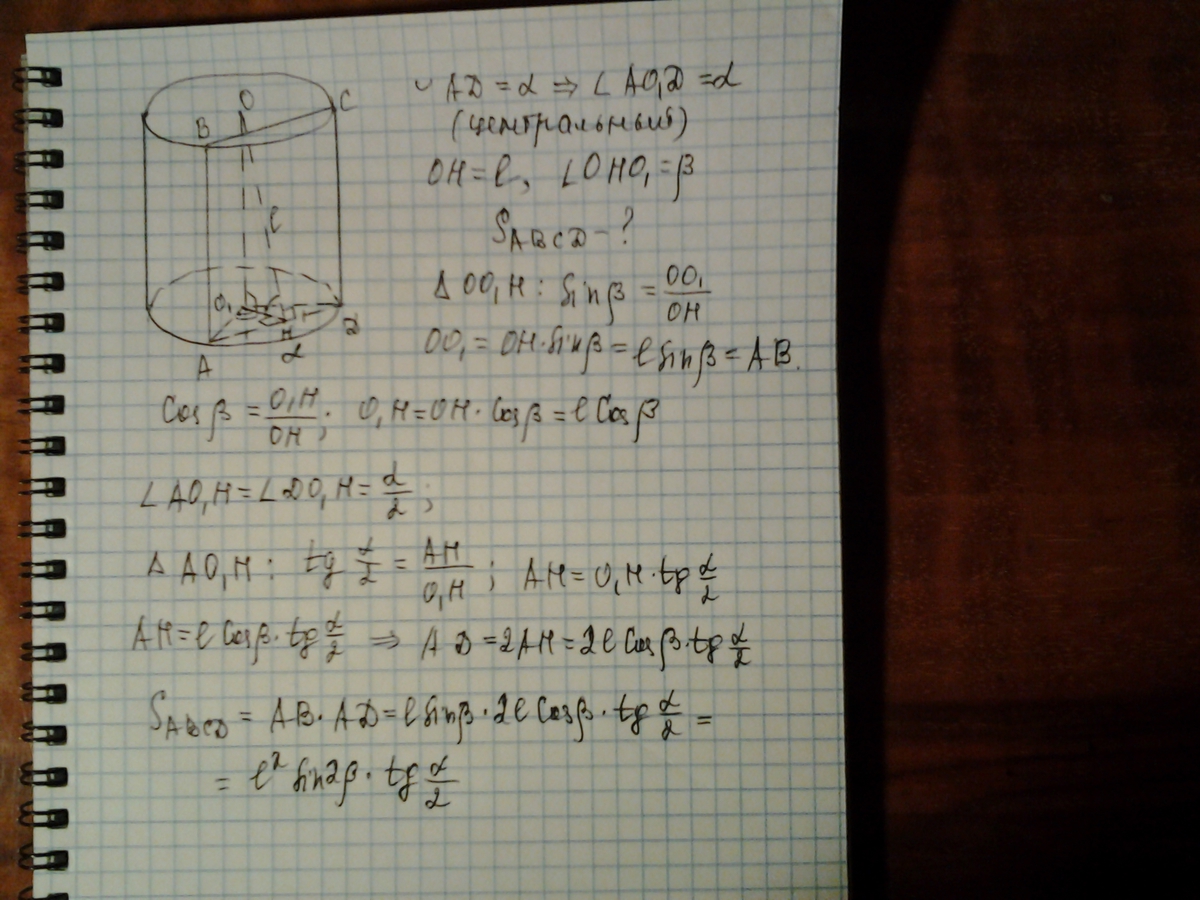 O
C
B
l
O₁
H
D
A
α
◡ AD = α ⇒ ∠AO₁D = α
(центральный)
OH = l, ∠OHO₁ = β
S_ABCD - ?
Δ OO₁H : sin β = OO₁/OH
OO₁ = OH·sin β = l sin β = AB.
Cos β = O₁H/OH ; O₁H = OH · Cos β = l Cos β
∠AO₁H = ∠DO₁H = α/2 ;
Δ AO₁H : tg α/2 = AH/O₁H ; AH = O₁H · tg α/2
AH = l Cos β · tg α/2 ⇒ AD = 2AH = 2l Cos β · tg α/2
S_ABCD = AB · AD = l sin β · 2l Cos β · tg α/2 =
= l² sin 2β · tg α/2